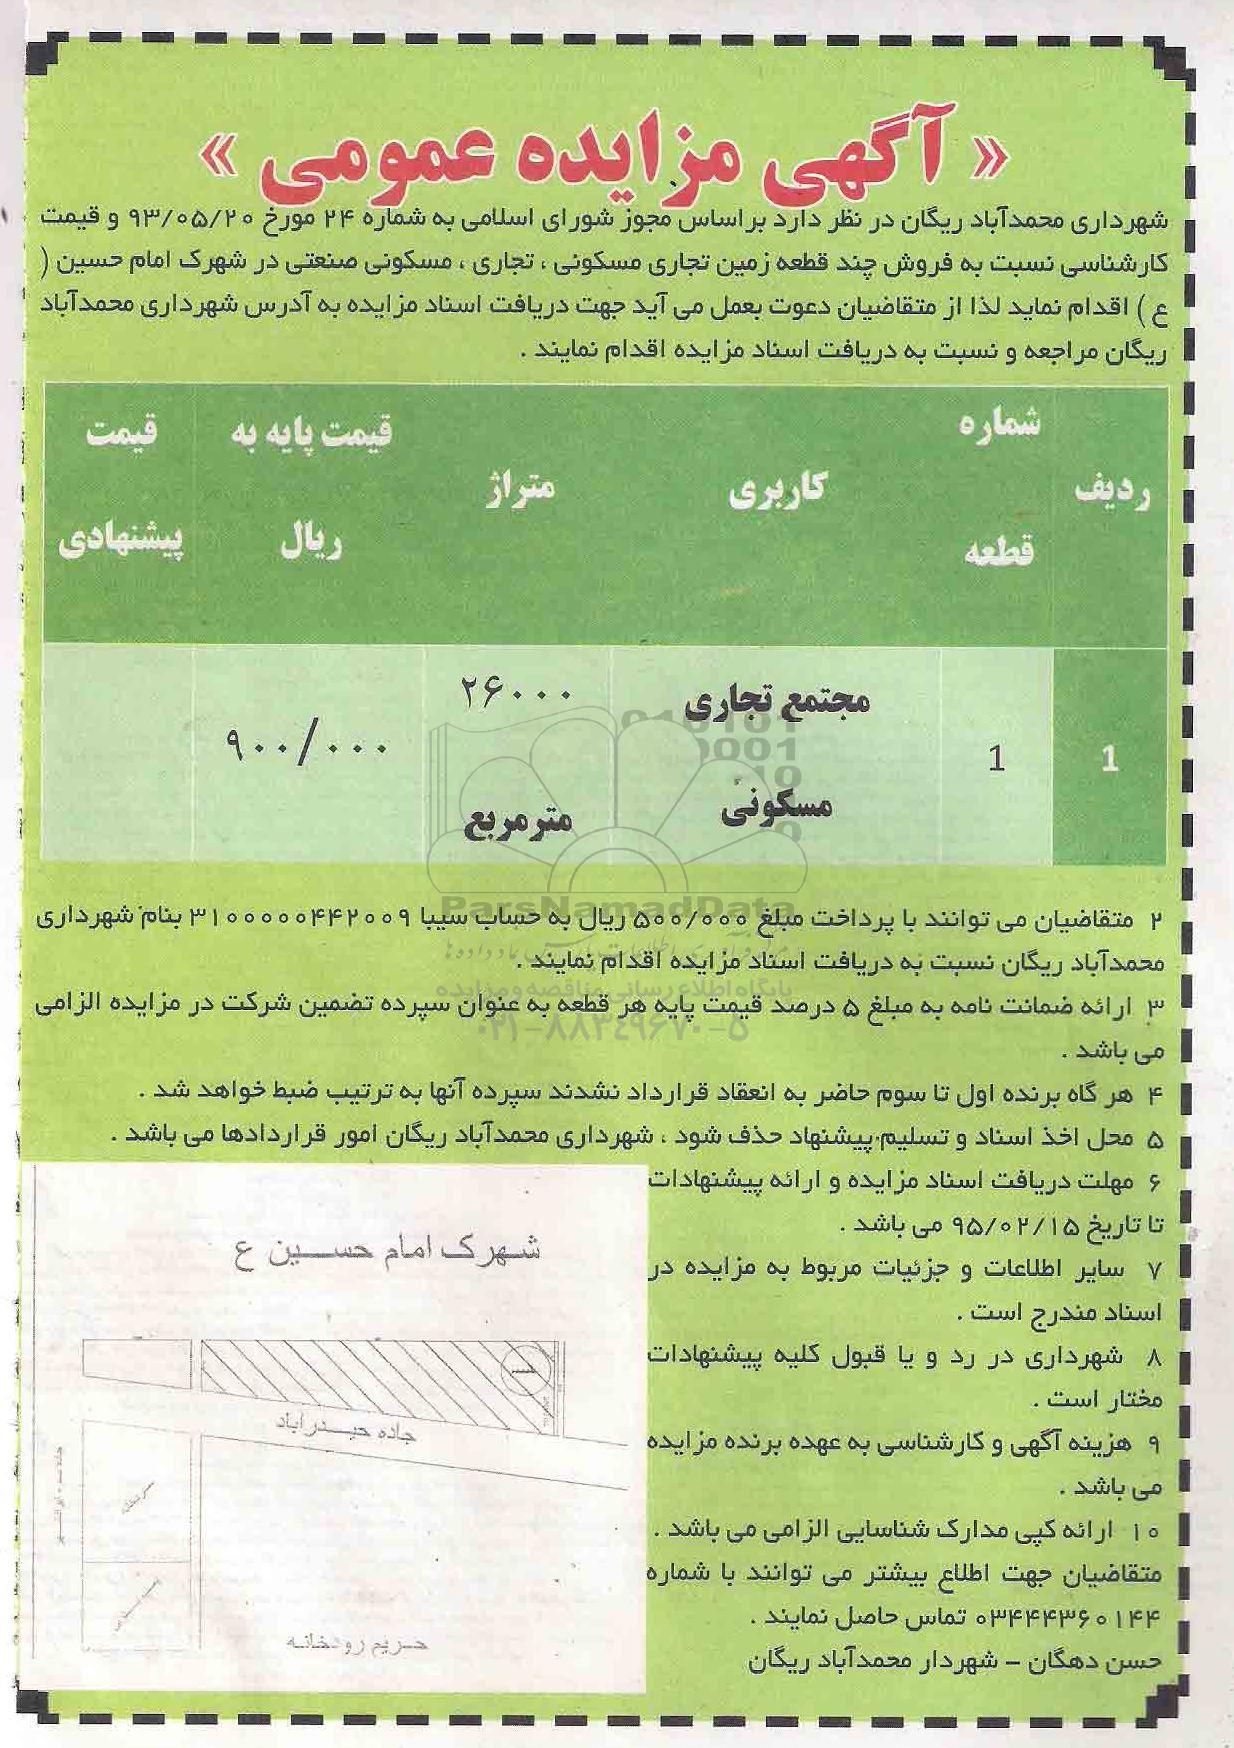 « آگهی مزایده عمومی »
شهرداری محمدآباد ریگان در نظر دارد براساس مجوز شورای اسلامی به شماره ۲۴ مورخ ۹۳/۰۵/۲۰ و قیمت
کارشناسی نسبت به فروش چند قطعه زمین تجاری مسکونی ، تجاری ، مسکونی صنعتی در شهرک امام حسین (
ع ) اقدام نماید لذا از متقاضیان دعوت بعمل می آید جهت دریافت اسناد مزایده به آدرس شهرداری محمدآباد
ریگان مراجعه و نسبت به دریافت اسناد مزایده اقدام نمایند .
ردیف
شماره
قطعه
کاربری
متراژ
قیمت پایه به
ریال
قیمت
پیشنهادی
1
1
مجتمع تجاری
مسکونی
۲۶۰۰۰
مترمربع
۹۰۰/۰۰۰
۲ متقاضیان می توانند با پرداخت مبلغ ۵۰۰/۰۰۰ ریال به حساب سیبا ۳۱۰۰۰۰۰۴۴۲۰۰۹ بنام شهرداری
محمدآباد ریگان نسبت به دریافت اسناد مزایده اقدام نمایند .
۳ ارائه ضمانت نامه به مبلغ ۵ درصد قیمت پایه هر قطعه به عنوان سپرده تضمین شرکت در مزایده الزامی
می باشد .
۴ هر گاه برنده اول تا سوم حاضر به انعقاد قرارداد نشدند سپرده آنها به ترتیب ضبط خواهد شد .
۵ محل اخذ اسناد و تسلیم پیشنهاد حذف شود ، شهرداری محمدآباد ریگان امور قراردادها می باشد .
۶ مهلت دریافت اسناد مزایده و ارائه پیشنهادات
تا تاریخ ۹۵/۰۲/۱۵ می باشد .
۷ سایر اطلاعات و جزئیات مربوط به مزایده در
اسناد مندرج است .
۸ شهرداری در رد و یا قبول کلیه پیشنهادات
مختار است .
۹ هزینه آگهی و کارشناسی به عهده برنده مزایده
می باشد .
۱۰ ارائه کپی مدارک شناسایی الزامی می باشد .
متقاضیان جهت اطلاع بیشتر می توانند با شماره
۰۳۴۴۴۳۶۰۱۴۴ تماس حاصل نمایند .
حسن دهگان – شهردار محمدآباد ریگان
شهرک امام حسین ع
جاده حیدرآباد
حریم رودخانه
ParsNamadData
پایگاه اطلاع رسانی مناقصه و مزایده
۰۲۱-۸۸۳۴۹۶۷۰-۵